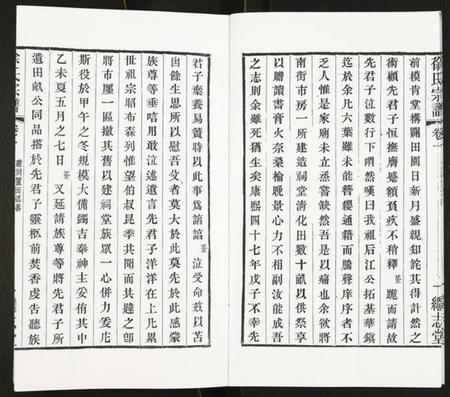 徐氏宗譜
卷一
一
繼志堂
前模肯堂構闢田園日新月盛親知詫其得計然之
術顧先君子恆撫膺蹙額負疚不稍釋 荃 跪而請故
先君子泣數行下喟然嘆曰我祖后江公拓基華鎮
迄於余凡六葉雖未能簪纓通籍而騰聲庠序者不
乏人惟是家廟未立烝嘗缺然吾是以痛也余欲將
南街市房一所建造祠堂清化田數十畝以供祭享
以贍讀書膏火奈桑榆晚景心力不相副汝能成吾
之志則余雖死猶生矣康熙四十七年戊子不幸先
君子棄養易簀時以此事為諄諄 荃 泣受命茲以苦
由餘生思所以慰吾父者莫大於此莫先於此感蒙
族尊等垂唁用敢泣述遺言先君子洋洋在上凡累
世祖宗昭布森列惟望伯叔昆季共聞而共趨之即
將市廛一區撤其舊以建祠堂族眾一心併力爰庀
斯役於甲午之冬規模大備蠲吉奉神主妥侑其中
乙未夏五月之七日 荃 又延請族尊等將先君子所
遺田畝公同品搭於先君子靈柩前焚香虔告聽族
徐氏宗譜
卷一
建祠置田述畧